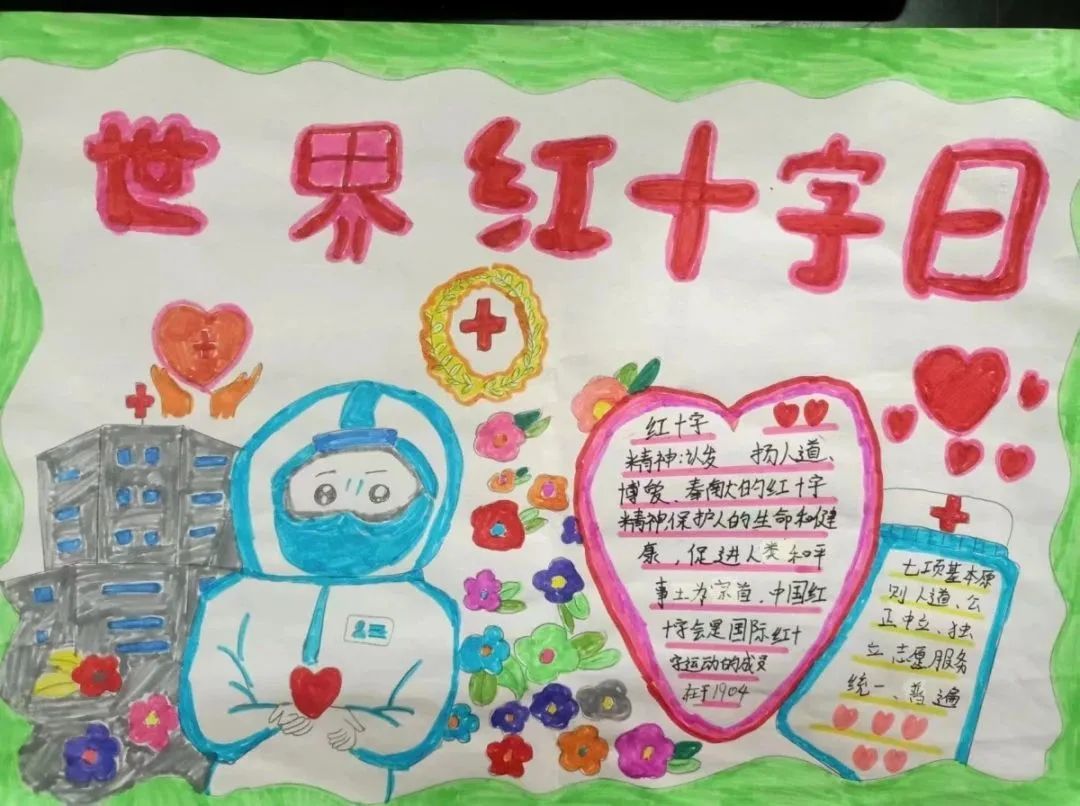 世界红十字日
红十字
精神:以发 扬人道、
博爱、奉献的红十字
精神保护人的生命和健
康,促进人类和平
事土为宗旨,中国红
十字会是国际红十
字运动的成员
在于1904
七项基本原
则人道、公
正中立、独
立志愿服务
统一、普遍